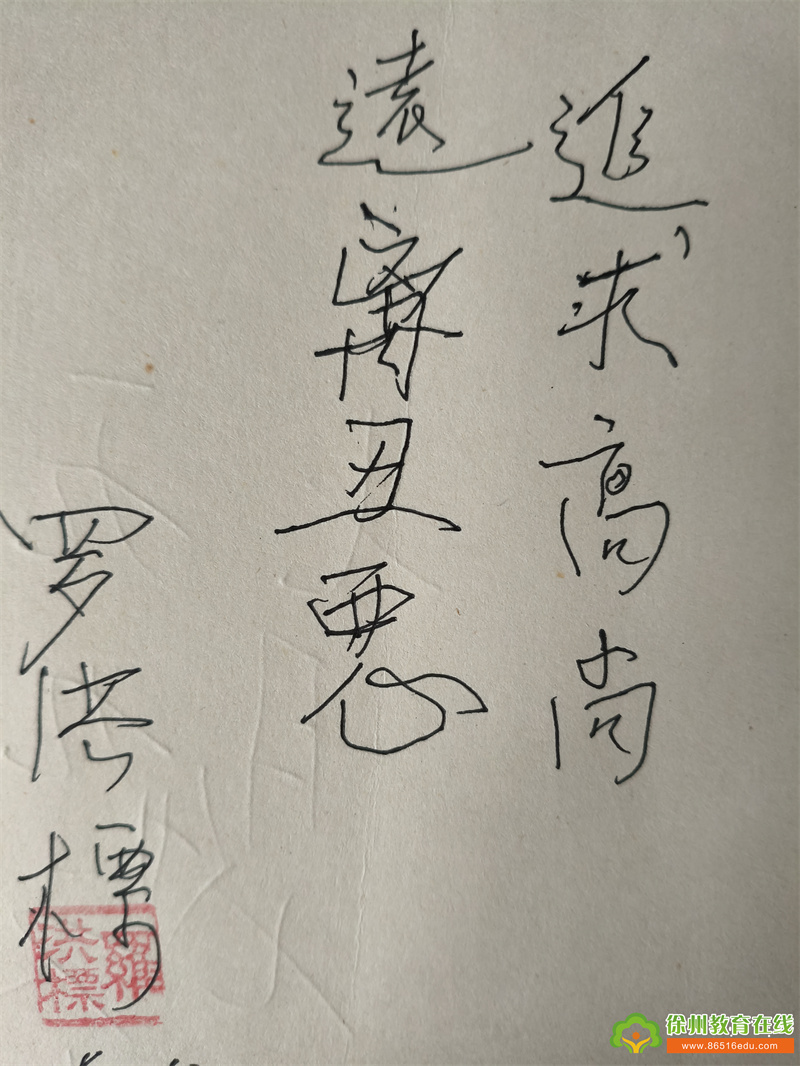 追求高尚
遠离丑恶
罗洪標
羅洪標
徐州教育在线
www.86516edu.com